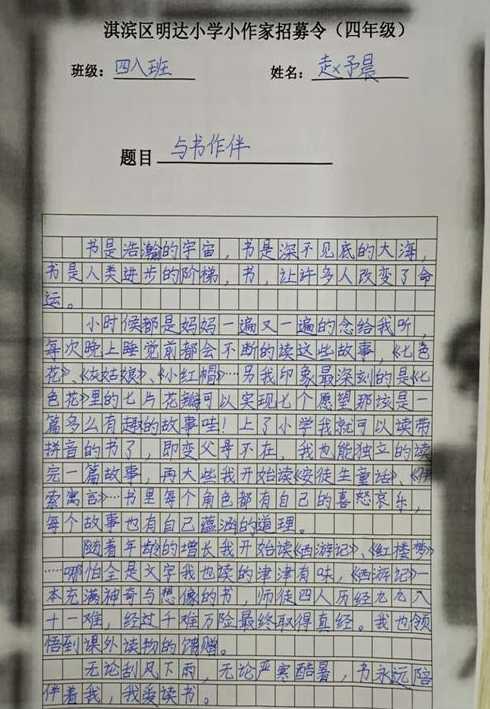 淇滨区明达小学小作家招募令（四年级）
班级：四八班 姓名：赵予晨
题目 与书作伴
书是浩瀚的宇宙，书是深不见底的大海，
书是人类进步的阶梯，书，让许多人改变了命
运。
小时候都是妈妈一遍又一遍的念给我听，
每次晚上睡觉前都会不断的读这些故事，《七色
花》、《灰姑娘》、《小红帽》…另我印象最深刻的是《七
色花》里的七片花瓣可以实现七个愿望那该是一
篇多么有趣的故事哇！上了小学我就可以读带
拼音的书了，即变父母不在，我也能独立的读
完一篇故事，再大些我开始读《安徒生童话》、《伊
索寓言》…书里每个角色都有自己的喜怒哀乐，
每个故事也有自己蕴涵的道理。
随着年龄的增长我开始读《西游记》、《红楼梦》
……哪怕全是文字我也读的津津有味，《西游记》一
本充满神奇与想像的书，师徒四人历经九九八
十一难，经过千难万险最终取得真经。我也领
悟到课外读物的馈赠。
无论刮风下雨，无论严寒酷暑，书永远陪
伴着我，我爱读书。